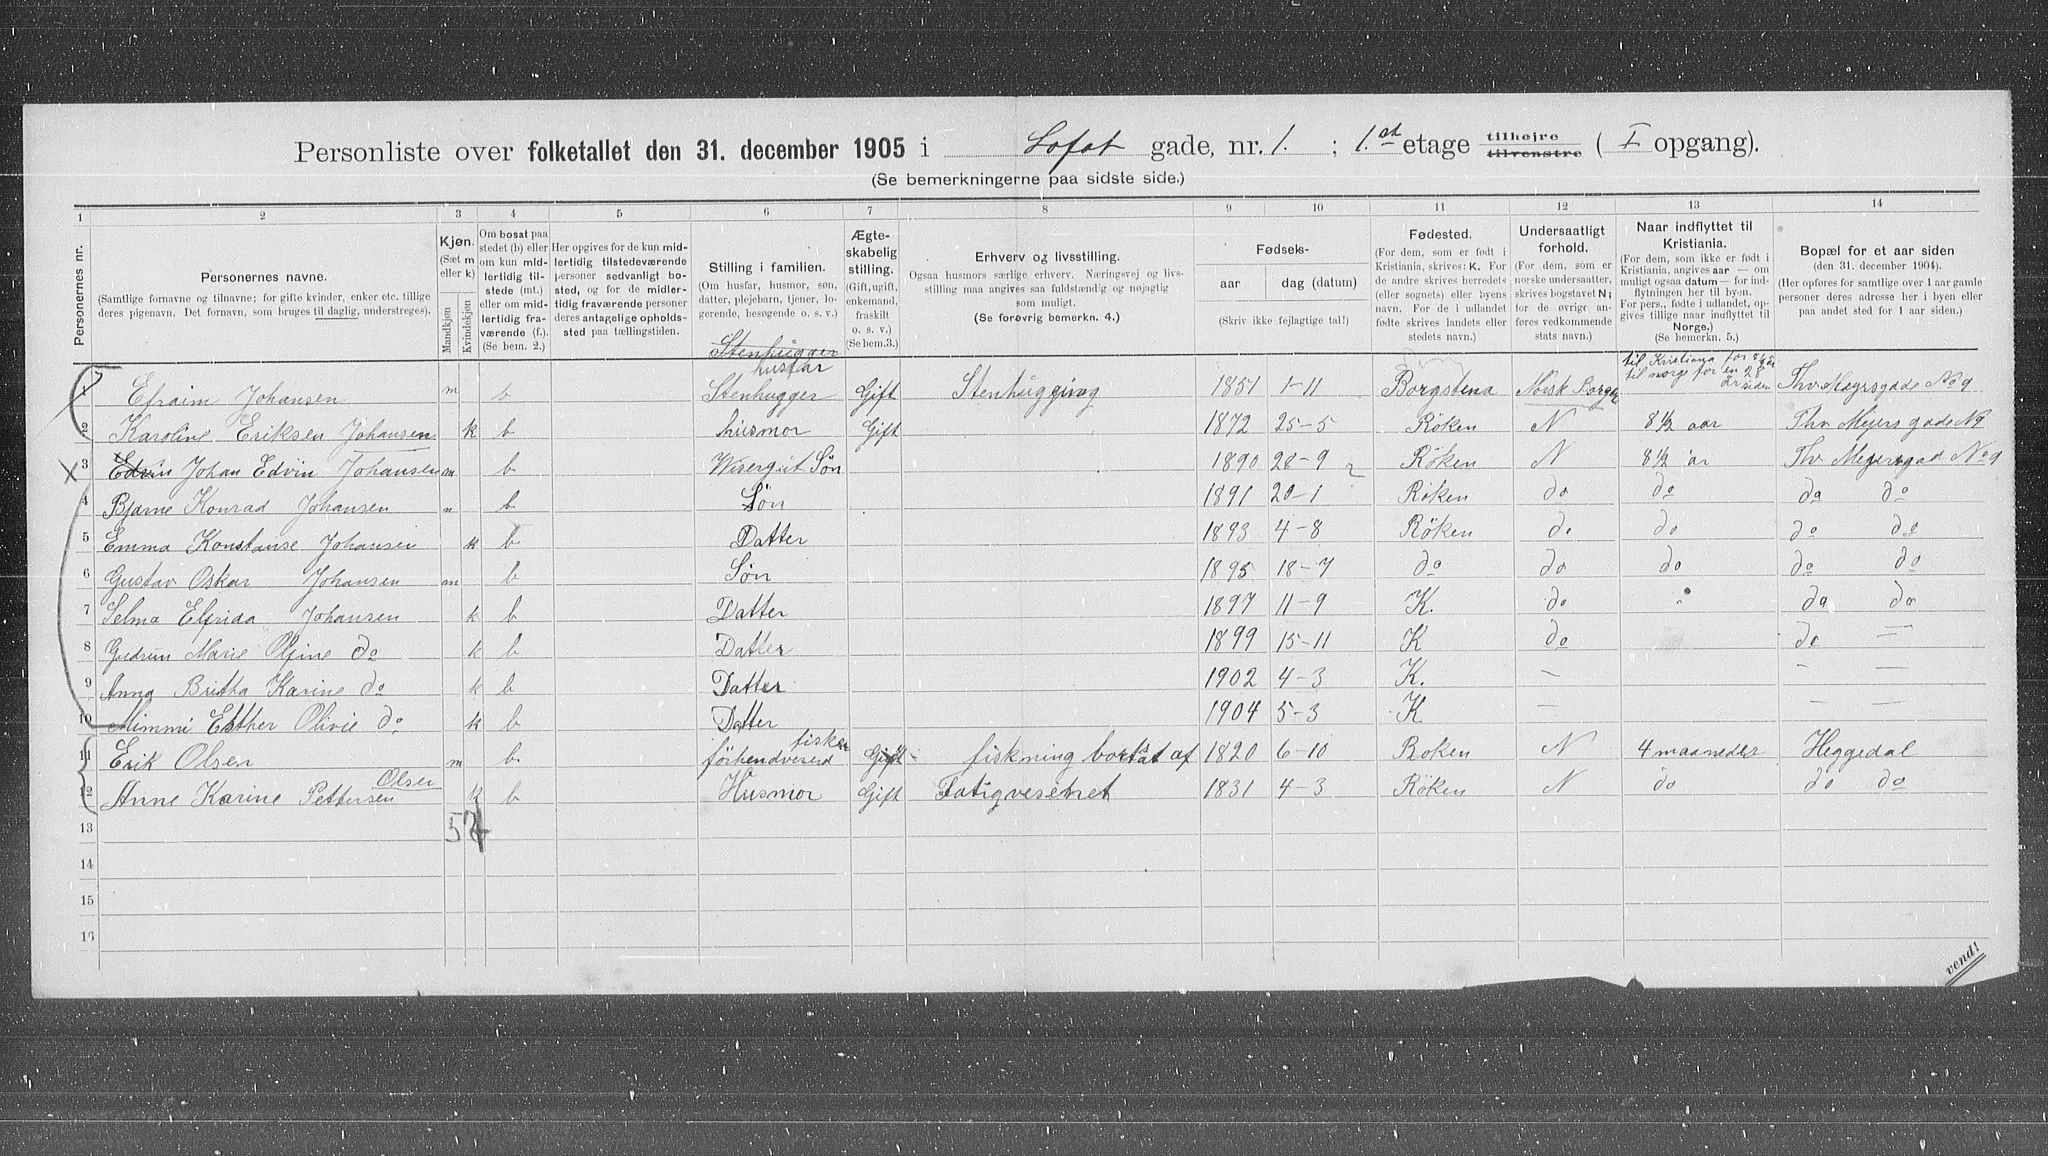 Personliste over folketallet den 31. december 1905 i Lofot gade, nr. 1. ; 1.st etage tilhøire tilvenstre ( I opgang).
(Se bemerkningerne paa sidste side.)
1 2 3 4 5 6 7 8 9 10 11 12 13 14
Personernes nr.
Personernes navne.
(Samtlige fornavne og tilnavne; for gifte kvinder, enker etc. tillige
deres pigenavn. Det fornavn, som bruges til daglig, understreges).
Kjøn.
(Sæt m
eller k)
Mandkjøn
Kvindekjøn
Om bosat paa
stedet (b) eller
om kun mid-
lertidig til-
stede (mt.)
eller om mid-
lertidig fra-
værende (f.).
(Se bem. 2.)
Her opgives for de kun mid-
lertidig tilstedeværende
personer sedvanligt bo-
sted, og for de midler-
tidig fraværende personer
deres antagelige opholds-
sted paa tællingstiden.
Stilling i familien.
(Om husfar, husmor, søn,
datter, plejebarn, tjener, lo-
gerende, besøgende o. s. v.)
Ægte-
skabelig
stilling.
(Gift, ugift,
enkemand,
fraskilt
o. s. v.)
(Se bem.3.)
Erhverv og livsstilling.
Ogsaa husmors særlige erhverv. Næringsvej og livs-
stilling maa angives saa fuldstændig og nøjagtig
som muligt.
(Se forøvrig bemerkn. 4.)
Fødsels-
aar dag (datum)
(Skriv ikke fejlagtige tal!)
Fødested.
(For dem, som er født i
Kristiania, skrives: K. For
de andre skrives herredets
(eller sognets) eller byens
navn. For de i udlandet
fødte skrives landets eller
stedets navn.)
Undersaatligt
forhold.
(For dem, som er
norske undersaatter,
skrives bogstavet N;
for de øvrige an-
føres vedkommende
stats navn.)
Naar indflyttet til
Kristiania.
(For dem, som ikke er født i
Kristiania, angives aar — om
muligt ogsaa datum — for ind-
flytningen her til byen.
For pers., fødte i udlandet, op-
gives tillige naar indflyttet til
Norge.)
(Se bemerkn. 5.)
Bopæl for et aar siden
(den 31. december 1904).
(Her opføres for samtlige over 1 aar gamle
personer deres adresse her i byen eller
paa andet sted for 1 aar siden.)
Stenhugger
husfar
til Kristiana for 8½ år
til norge for en 28 år siden
1 Efraim Johansen m b Stenhugger Gift Stenhugging 1851 1-11 Borgstena Norsk Borger Thv Meyrsgade No 9
2 Karoline Eriksen Johansen k b husmor Gift 1872 25-5 Röken N 8½ aar Thv Mejers gade N9
3 Edvin Johan Edvin Johansen m b Visergut Søn 1890 28-9 Röken N 8½ år Thv Mejersgad No 9
4 Bjarne Konrad Johansen m b Søn 1891 20-1 Röken do do do do
5 Emma Konstanse Johansen k b Datter 1893 4-8 Röken do do do do
6 Gustav Oskar Johansen m b Søn 1895 18-7 do do do do do
7 Selma Elfrida Johansen k b Datter 1897 11-9 K. do do do
8 Gudrun Marie Olfine do k b Datter 1899 15-11 K do do —
9 Anna Britha Karine do k b Datter 1902 4-3 K. — — —
10 Mimmi Esther Olivie do k b Datter 1904 5-3 K — — —
11 Erik Olsen m b. förhendverend fisker Gift fiskning bortsat af 1820 6-10 Roken N 4 maaneder Heggedal
12 Anne Karine Pettersen Olsen k b Husmor Gift Fatigvesenet 1831 4-3 Röken N do do do
13 57
14
15
16
vend!